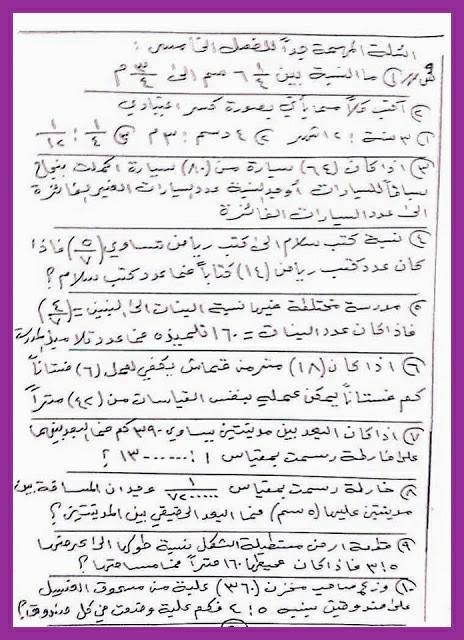 اسئلة المهمة جداً للفصل الخامس :
س١/ ① ما النسبة بين ٦ ١/٤ سم الى ٣/٤ م
② أكتب كلاً مما يأتي بصورة كسر اعتيادي
① ٣ سنة : ١٢ شهر ② ٤ دسم : ٣ م ③ ١/٤ : ١/١٢
③ اذا كان (٦٤) سيارة من (٨٠) سيارة اكملت بنجاح
سباقاً للسيارات أوجد نسبة عدد السيارات الغير الفائزة
الى عدد السيارات الفائزة
④ نسبة كتب سلام الى كتب رياض تساوي (٥/٧) فاذا
كان عدد كتب رياض (١٤) كتاباً فما عدد كتب سلام ؟
⑤ مدرسة مختلطة فيها نسبة البنات الى البنين = (٤/٧)
فاذا كان عدد البنات = ١٦٠ تلميذة فما عدد تلاميذ المدرسة
⑥ اذا كان (١٨) متر من قماش يكفي لعمل (٦) فستاناً
كم فستاناً يمكن عمله بنفس القياسات من (٤٢) متراً
⑦ اذا كان البعد بين مدينتين يساوي ٣٩٠ كم فما البعد بينهما
على خارطة رسمت بمقياس ١ : ١٣٠٠٠٠٠٠ ؟
⑧ خارطة رسمت بمقياس ١/٧٢٠٠٠٠٠ وجد ان المسافة بين
مدينتين عليها (٥ سم) فما البعد الحقيقي بين المدينتين ؟
⑨ قطعة ارض مستطيلة الشكل نسبة طولها الى عرضها
٥ : ٣ فاذا كان محيطها ١٦٠ متراً فما مساحتها ؟
⑩ وزع صاحب مخزن (٣٦٠) علبة من مسحوق الغسيل
على صندوقين بنسبة ٥ : ٢ فكم علبة وضعت في كل صندوق ؟